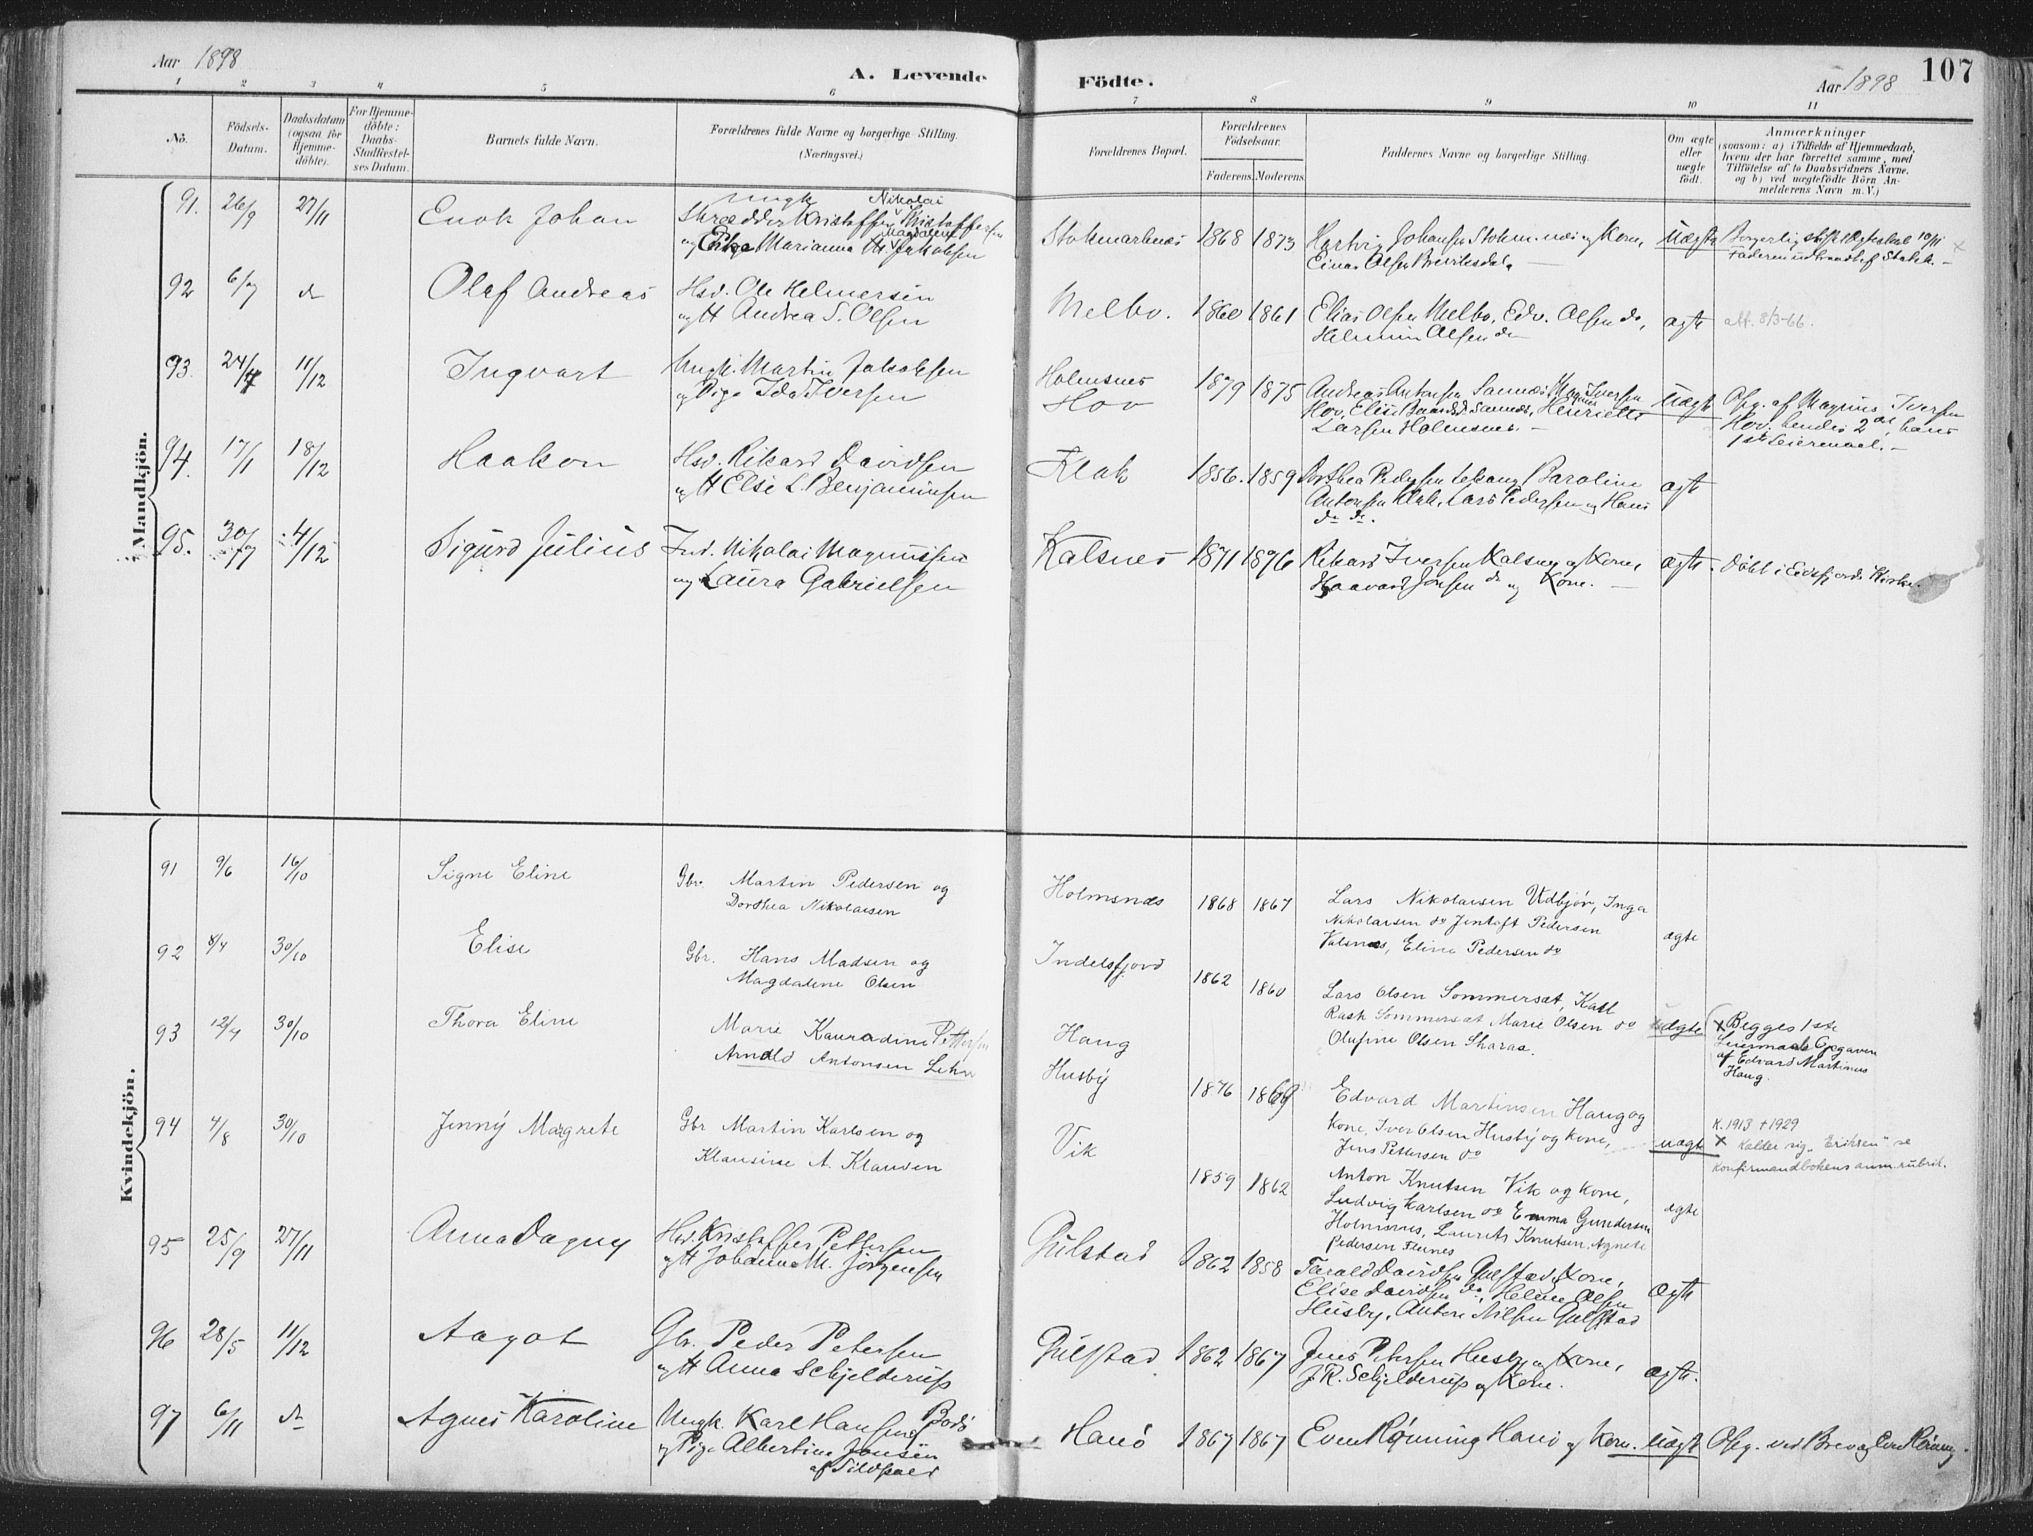 Aar 1898
A. Levende
Födte.
Aar 1898
107
1 2 3 4 5 6 7 8 9 10 11
No.
Födsels-Datum.
Daabsdatum (ogsaa for Hjemmedöbte).
For Hjemmedöbte: Daabs-Stadfæstelses Datum.
Barnets fulde Navn.
Forældrenes fulde Navne og borgerlige Stilling. (Næringsvei.)
Forældrenes Bopæl.
Forældrenes Födselsaar.
Faderens. Moderens.
Faddernes Navne og borgerlige Stilling.
Om ægte eller uægte födt.
Anmærkninger
(saasom: a) i Tilfælde af Hjemmedaab,
hvem der har forrettet samme, med
Tilföielse af to Daabsvidners Navne.
og b) ved uægtefödte Börn Anmelderens Navn m. V.)
Mandkjön.
91. 26/9 27/11 Enok Johan
Ungk Nikolai
Skrædder Kristoffer Kristoffersen
og Pige Marianna Magdalena Jakobsen
Stokmarknes 1868 1873
Hartvig Johansen Stokm.næs og Kone,
Einar Olsen Breviksdal
Uægte
Borgerlig
92 6/7 do Olaf Andreas
Hsd. Ole Helmersen
og H Andrea S. Olsen
Melbo. 1860 1861
Elias Olsen Melbo, Edv. Olsen do,
Helmin Olsen do
ægte
att. 8/3-66.
93. 24/4 11/12 Ingvart
Ungk. Martin Jakobsen
og Pige Ida Iversen
Holmsnes
Hov
1879 1875
Andreas Antonsen Sannes, Magnus Iversen
Hov, Elise Sannes, Henriette
Larsen Holmsnes. —
Uægte
Opg. af Magnus Iversen
Hov. hendes 2det, hans
1ste Leiermaal. —
94. 17/1 18/12 Haakon
Hsd. Rikard Davidsen
og H Else L. Benjaminsen
Flak 1856. 1859
Dorthea Pedersen Baroline
Antonsen Flak, Lars Pedersen og Hans
do do.
ægte
95. 30/7 4/12 Sigurd Julius
Ind. Nikolai Magnussen
og Laura Gabrielsen
Kalsnes 1871 1876
Rikard Iversen Kalsnes og Kone,
Haavard Jensen do og Kone. —
ægte. Döbt i Eidsfjords Kirke.
Kvindekjön.
91 9/6 16/10 Signe Eline
Gbr. Martin Pedersen og
Dorthea Nikolaisen
Holmsnæs 1868 1867
Lars Nikolaisen Udbjör, Inga
Nikolaisen do Jentoft Pedersen
Valsnæs, Eline Pedersen do
ægte
92 8/4 30/10 Elise
Gbr. Hans Madsen og
Magdaline Olsen
Indelsfjord 1862 1860
Lars Olsen Sommersæt, Karl
Rask Sommersæt Marie Olsen do
Olufine Olsen Skaraa.
ægte
93 12/4 30/10 Thora Eline
Marie Kanradine Pettersen
Arnold Antonsen Lehn
Haug
Husby
1876 1869
Edvard Martinsen Haug og
kone, Iver Olsen Husby og kone,
Jens Pettersen do
uægte
Begges 1ste
Leiermaals Opgaven
af Edvard Martinus
Haug.
94 4/8 30/10 Jenny Margrete
Gbr Martin Karlsen og
Klausine A. Klausen
Vik 1859 1862
Anton Knutsen Vik og kone,
Ludvig Karlsen do Emma Gundersen
Holmsnes, Laurits Knutsen, Agnete
Pedersen Flunes
ægte
K. 1913 + 1929
X Kalder sig "Eriksen" se
konfirmandbokens anm.rubrik.
95 25/9 27/11 Anna Dagny
Hsd. Kristoffer Pettersen
og H Johanna M. Jörgensen
Gulstad 1862 1858
Tarald Davidsen Gulstad og Kone,
Elise Davidsen do, Helene Olsen
Husby, Nilsen Gulstad
ægte
96 28/5 11/12 Aagot
Gbr. Peder Petersen
og H Anna Schjelderup
Gulstad 1862 1867
Jens Petersen Husby og Kone,
J. R. Schjelderup og Kone.
ægte.
97 6/11 do Agnes Karoline
Ungk. Karl Hansen Bodö
og Pige Albertine Jensen
af
Hanö 1867 1867
Even Rönning Hanö og Kone.
Uægte
Opg. ved Brev og Even Rönning.